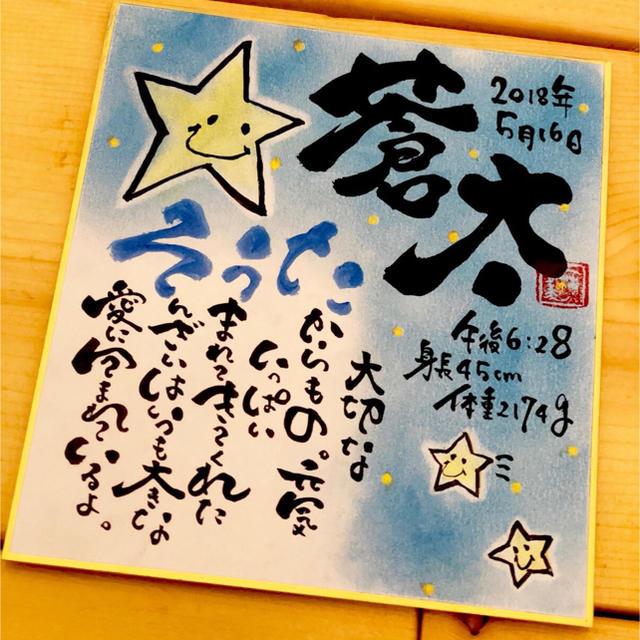 2018年
5月16日
蒼太
そうた
午後6:28
身長45cm
体重2174g
大切な
からもの。元気
いっぱい
まれてきてくれた
んざいはいつも大きな
愛に包まれているよ。